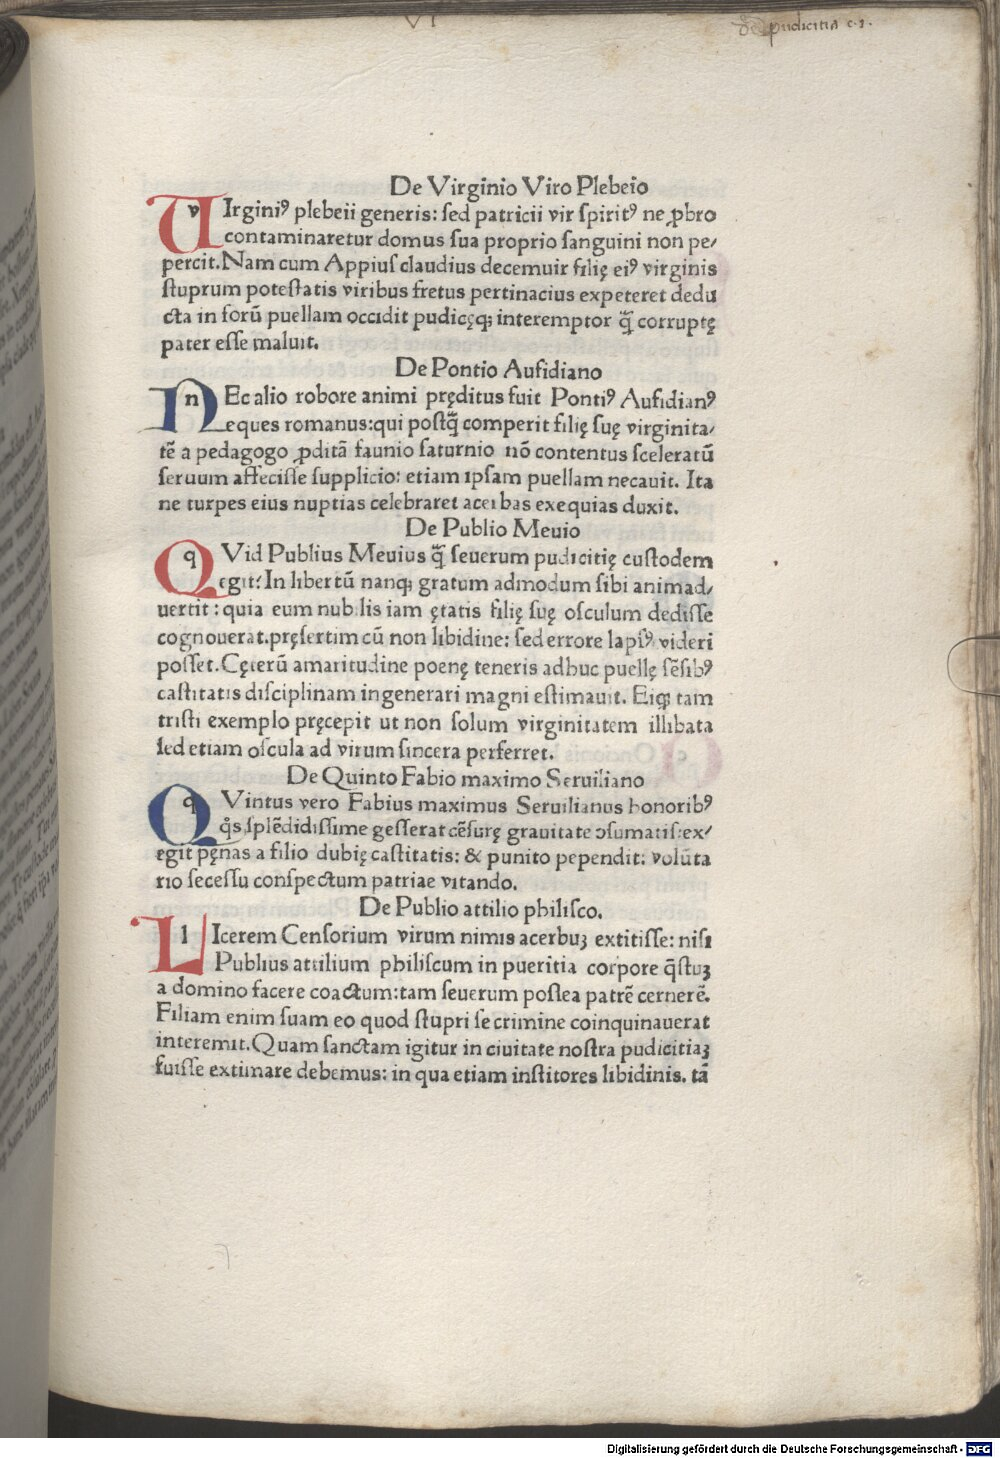 VI
de pudicitia c. 1.
De Virginio Viro Plebeio
VIrginiꝰ plebeii generis: sed patricii vir spiritꝰ ne ꝓbro
contaminaretur domus sua proprio sanguini non pe/
percit. Nam cum Appius claudius decemuir filię eiꝰ virginis
stuprum potestatis viribus fretus pertinacius expeteret dedu
cta in forū puellam occidit pudicęqꝫ interemptor q̃ corruptę
pater esse maluit.
De Pontio Aufidiano
nEc alio robore animi pręditus fuit Pontiꝰ Aufidianꝰ
eques romanus: qui postq̃ comperit filię suę virginita/
tē a pedagogo ꝓditā faunio saturnio nō contentus sceleratū
seruum affecisse supplicio: etiam ipsam puellam necauit. Ita
ne turpes eius nuptias celebraret acerbas exequias duxit.
De Publio Meuio
qVid Publius Meuius q̃ seuerum pudicitię custodem
egit? In libertū nanqꝫ gratum admodum sibi animad/
uertit: quia eum nubilis iam ętatis filię suę osculum dedisse
cognouerat. pręsertim cū non libidine: sed errore lapsꝰ videri
posset. Cęterū amaritudine poenę teneris adhuc puellę sēsibꝰ
castitatis disciplinam ingenerari magni estimauit. Eiqꝫ tam
tristi exemplo pręcepit ut non solum virginitatem illibata
sed etiam oscula ad virum sincera perferret.
De Quinto Fabio maximo Seruiliano
qVintus vero Fabius maximus Seruilianus honoribꝰ
q̊s splēdidissime gesserat cēsurę grauitate ↄsumatis: ex/
egit pęnas a filio dubię castitatis: & punito pependit: volūta
rio secessu conspectum patriae vitando.
De Publio attilio philisco.
lIcerem Censorium virum nimis acerbuꝫ extitisse: nisi
Publius attilium philiscum in pueritia corpore q̄stuꝫ
a domino facere coactum: tam seuerum postea patrē cernerē.
Filiam enim suam eo quod stupri se crimine coinquinauerat
interemit. Quam sanctam igitur in ciuitate nostra pudicitiaꝫ
fuisse extimare debemus: in qua etiam institores libidinis. tā
Digitalisierung gefördert durch die Deutsche Forschungsgemeinschaft - DFG